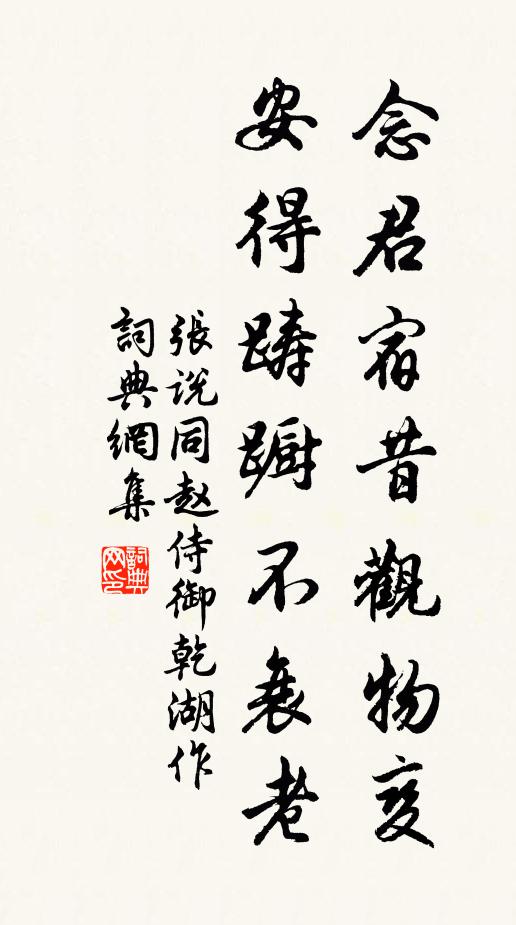 念君宿昔觀物變
安得躊躕不衰老
張說同趙侍御乾湖作
詞典網集
詞典网印